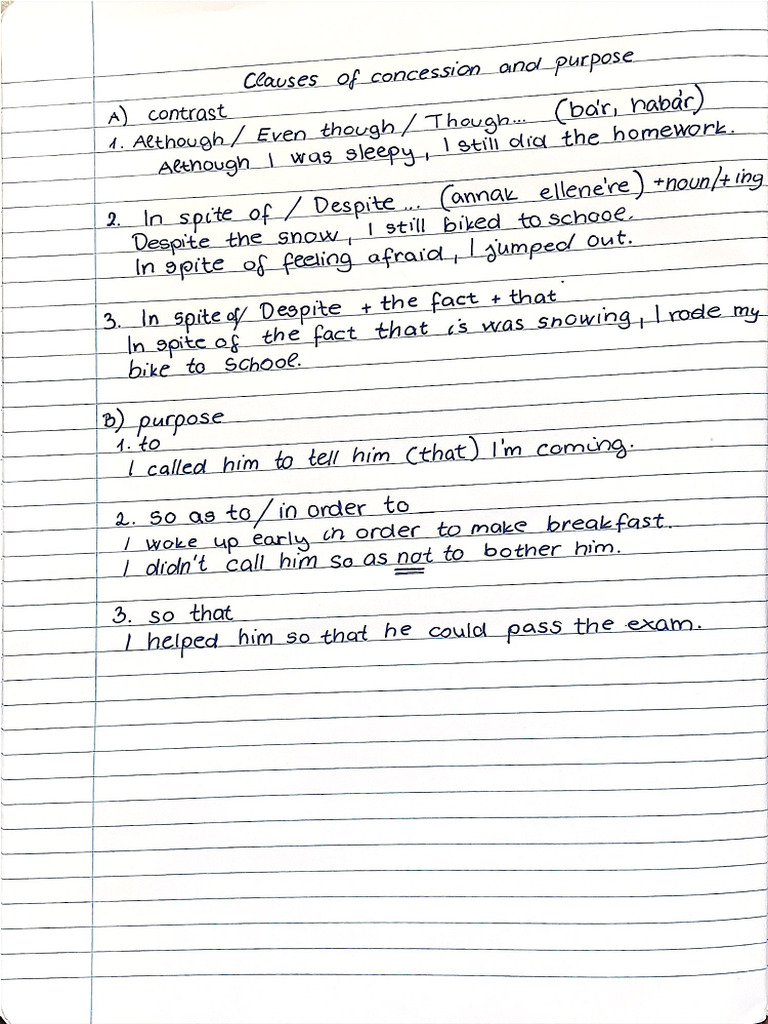 Clauses of concession and purpose
A) contrast
1. Although / Even though / Though... (bár, habár)
Although I was sleepy, I still did the homework.
2. In spite of / Despite... (annak ellenére) +noun/+ing
Despite the snow, I still biked to school.
In spite of feeling afraid, I jumped out.
3. In spite of/ Despite + the fact + that
In spite of the fact that is was snowing, I rode my
bike to school.
B) purpose
1. to
I called him to tell him (that) I'm coming.
2. so as to / in order to
I woke up early in order to make breakfast.
I didn't call him so as not to bother him.
3. so that
I helped him so that he could pass the exam.